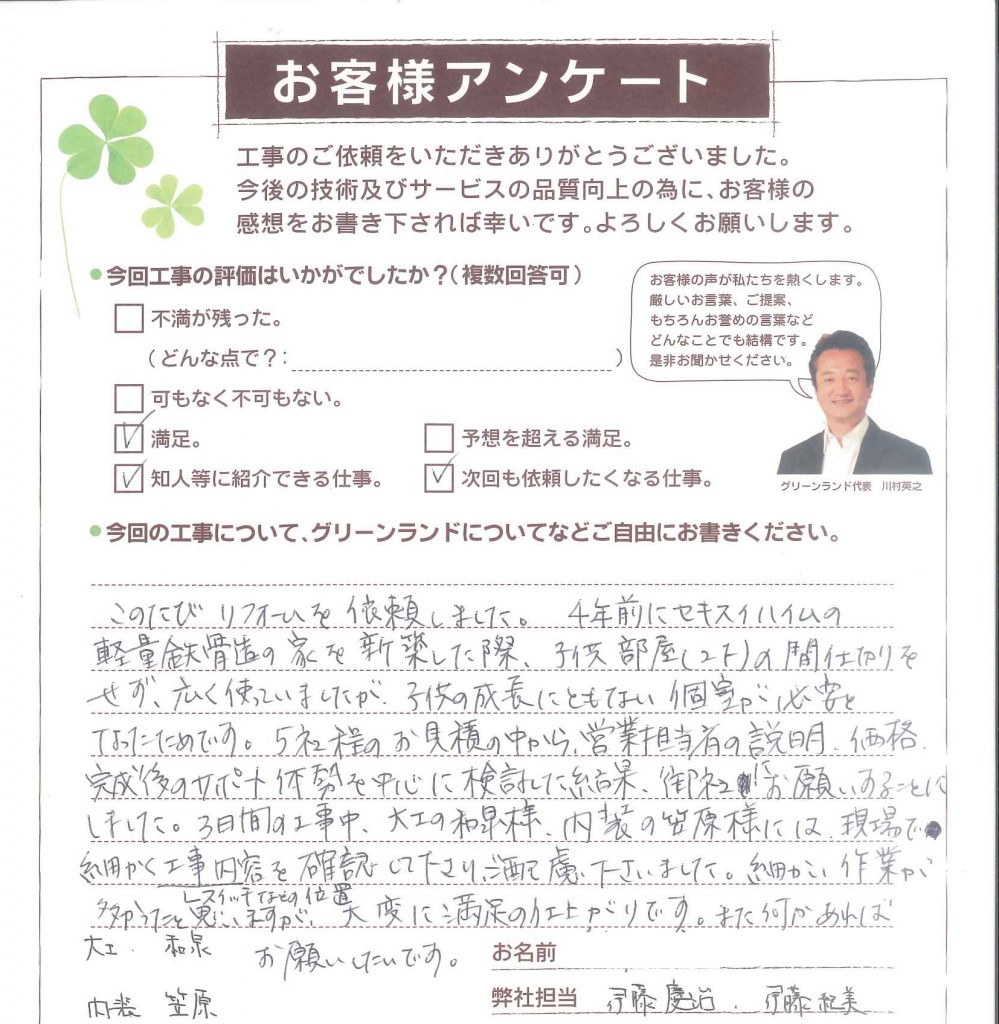 お客様アンケート
工事のご依頼をいただきありがとうございました。
今後の技術及びサービスの品質向上の為に、お客様の
感想をお書き下されば幸いです。よろしくお願いします。
●今回工事の評価はいかがでしたか？(複数回答可)
不満が残った。
(どんな点で？: )
可もなく不可もない。
満足。
予想を超える満足。
知人等に紹介できる仕事。
次回も依頼したくなる仕事。
お客様の声が私たちを熱くします。
厳しいお言葉、ご提案、
もちろんお誉めの言葉など
どんなことでも結構です。
是非お聞かせください。
グリーンランド代表 川村英之
●今回の工事について、グリーンランドについてなどご自由にお書きください。
このたび リフォームを依頼しました。4年前にセキスイハイムの
軽量鉄骨造の家を新築した際、子供部屋(2F)の間仕切りを
せず、広く使っていましたが、子供の成長にともない個室が必要と
なったためです。5社程のお見積の中から、営業担当者の説明、価格、
完成後のサポート体勢を中心に検討した結果、御社にお願いすることに
しました。3日間の工事中、大工の和泉様、内装の笠原様には、現場で
細かく工事内容を確認して下さり、ご配慮下さいました。細かい作業が
しスイッチなどの位置
多かったと思いますが、大変に満足の仕上がりです。また何かあれば
お願いしたいです。
大工 和泉
内装 笠原
お名前
弊社担当 伊藤慶治、伊藤紀美